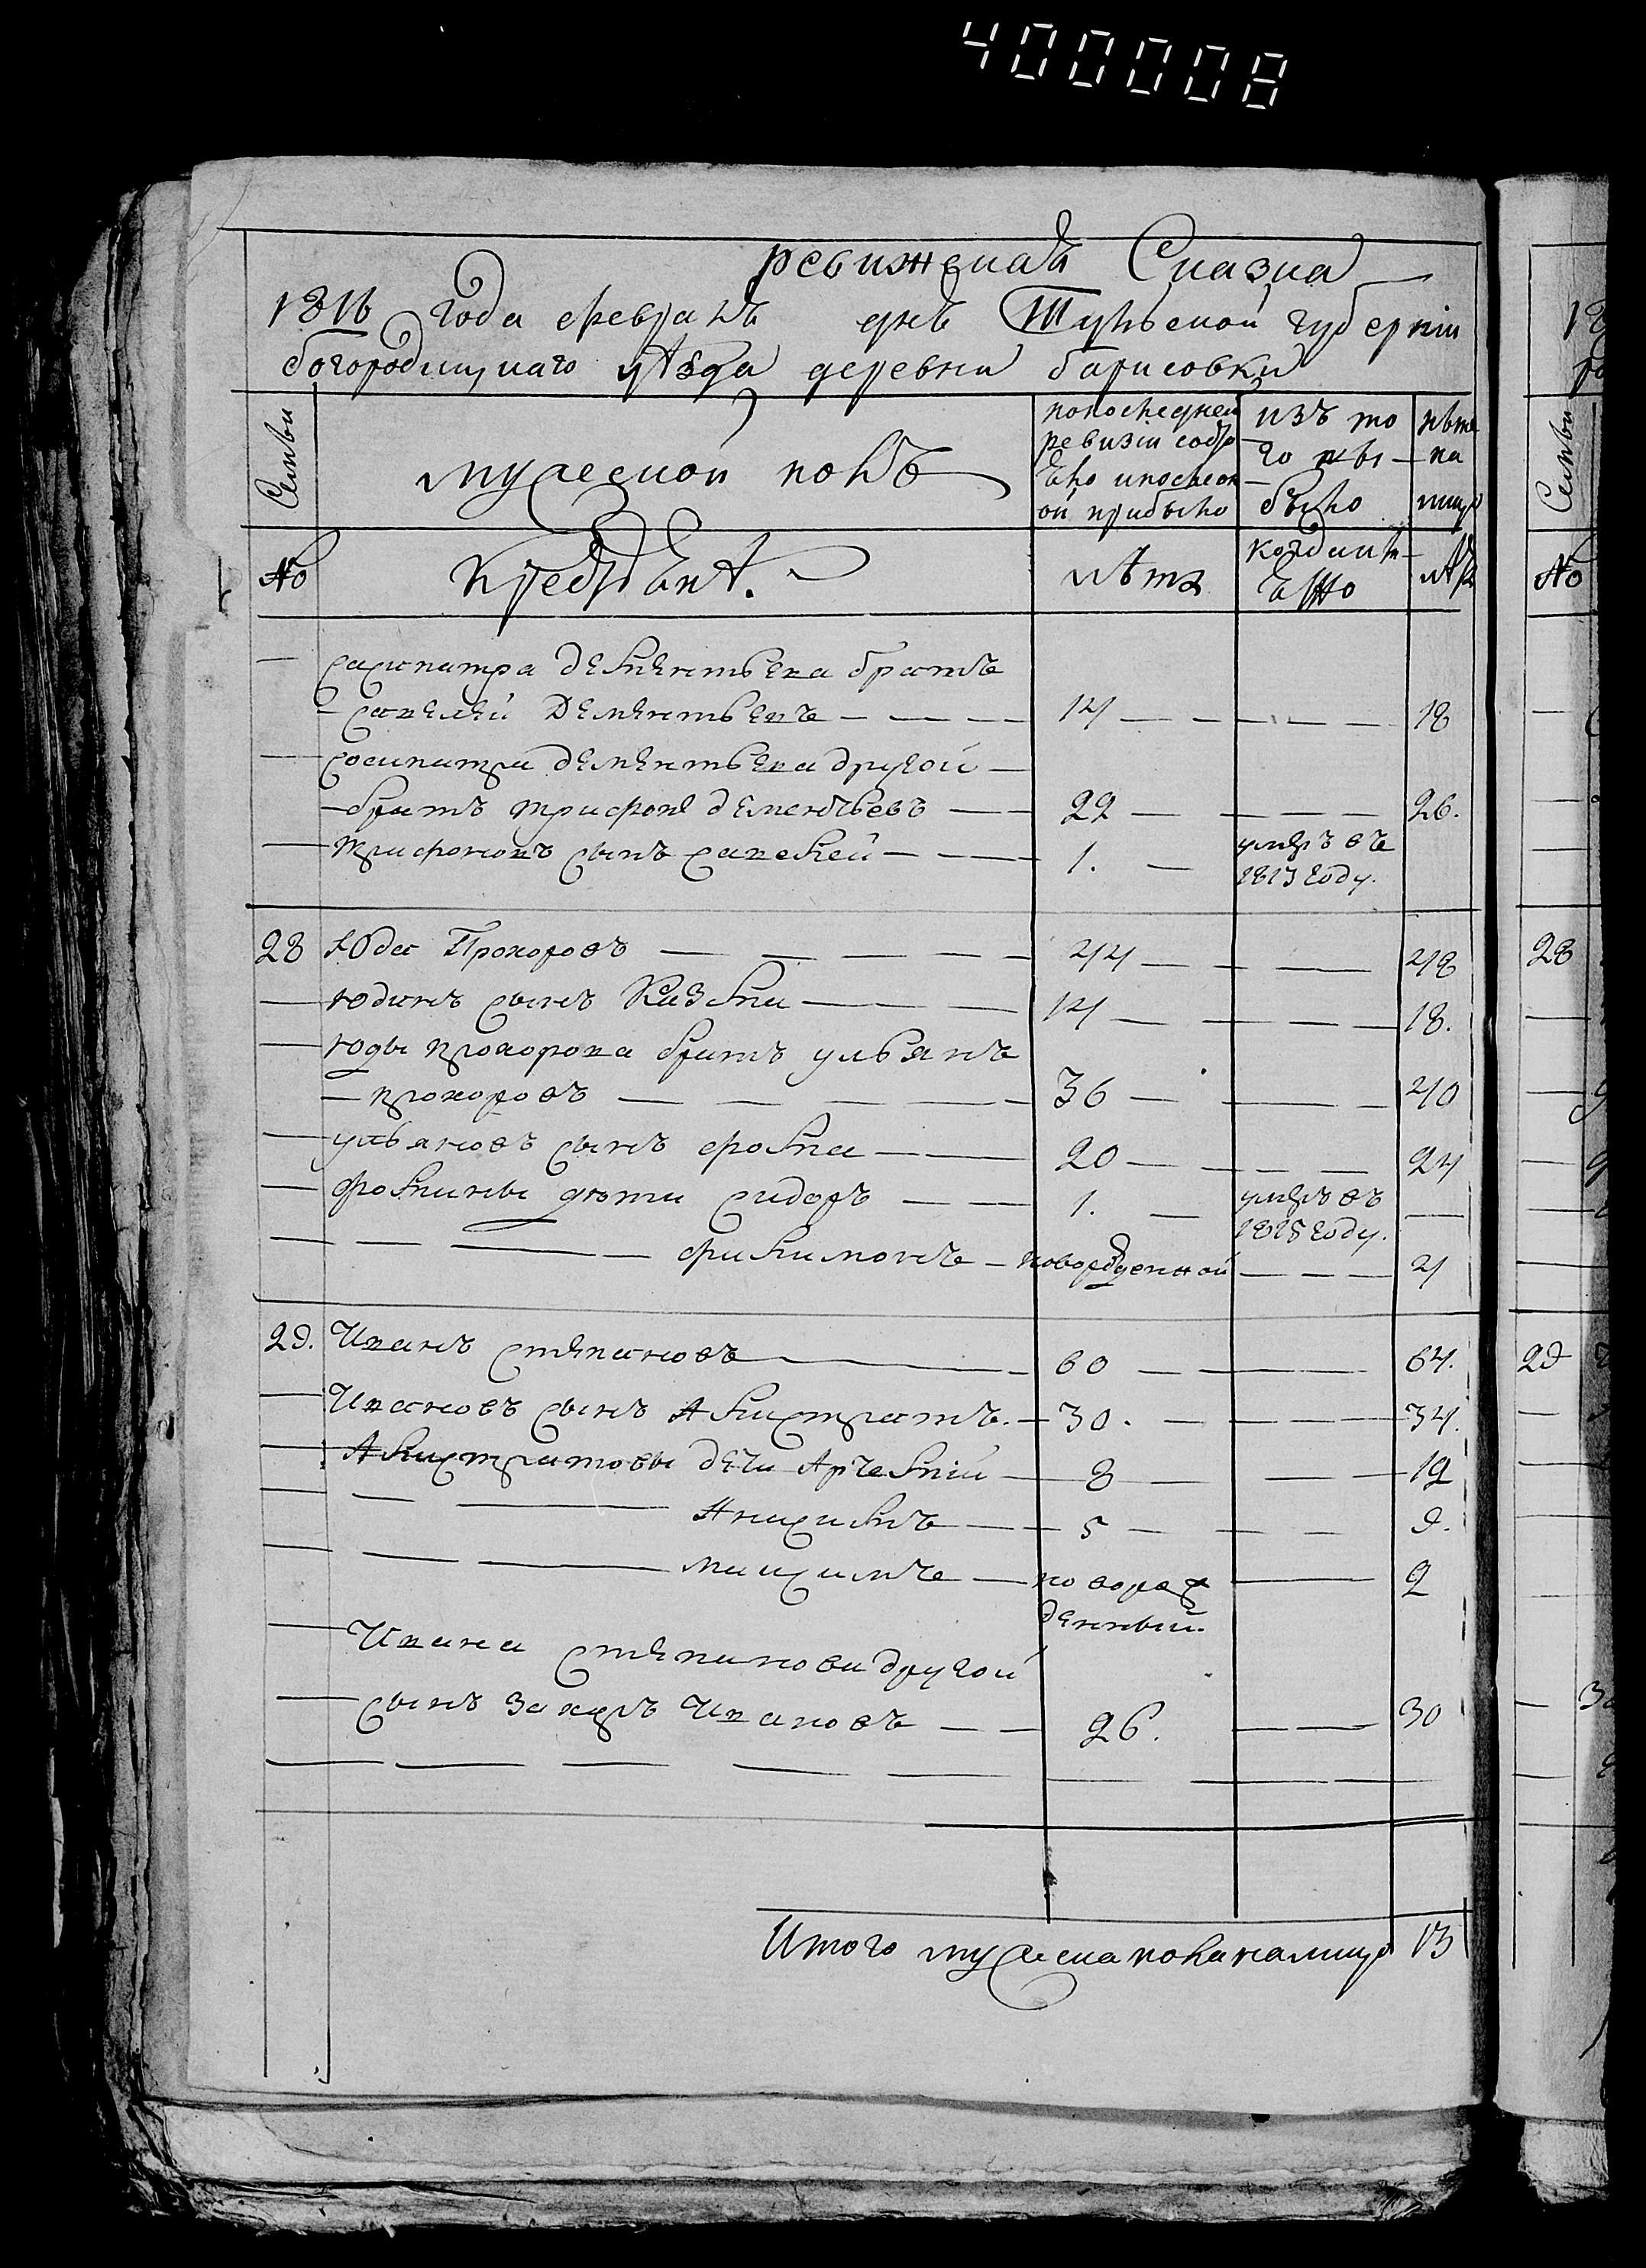 400008
ревижская Сказка
1816 года февраля дня Тульской губернии
богородицкаго уѣзда деревни барисовки
Семьи
мужеской полъ
по последней
ревизіи состо
яло и после он
ой прибыло
изъ то
го вы
было
нѣне
на
лицо
№
крестьянѣ.
лѣта
когда имя
ено
лѣта
сасипатра дементьева братъ
савелей Дементьевъ 14 18
сосипатра дементьева другой
братъ трифонъ дементьевъ 22 26.
трифоновъ сынъ савелей 1. умръ въ
1813 году.
28 Юда Прохоровъ 44 48
юдинъ сынъ Казма 14 18.
юды прохорова братъ ульянъ
прохоровъ 36 40
ульяновъ сынъ фома 20 24
фомины дети сидоръ 1. умръ въ
1815 году.
филимонъ новорожденной 4
29. Иванъ степановъ 60 64.
Ивановъ сынъ Алистратъ. 30. 34.
Алистратовы дети Артемій 8 12
Анисимъ 5 9.
максимъ новорож 2
денный.
Ивана степанова другой
сынъ захаръ Ивановъ 26. 30
Итого мужеска пола налицо 13
28
29